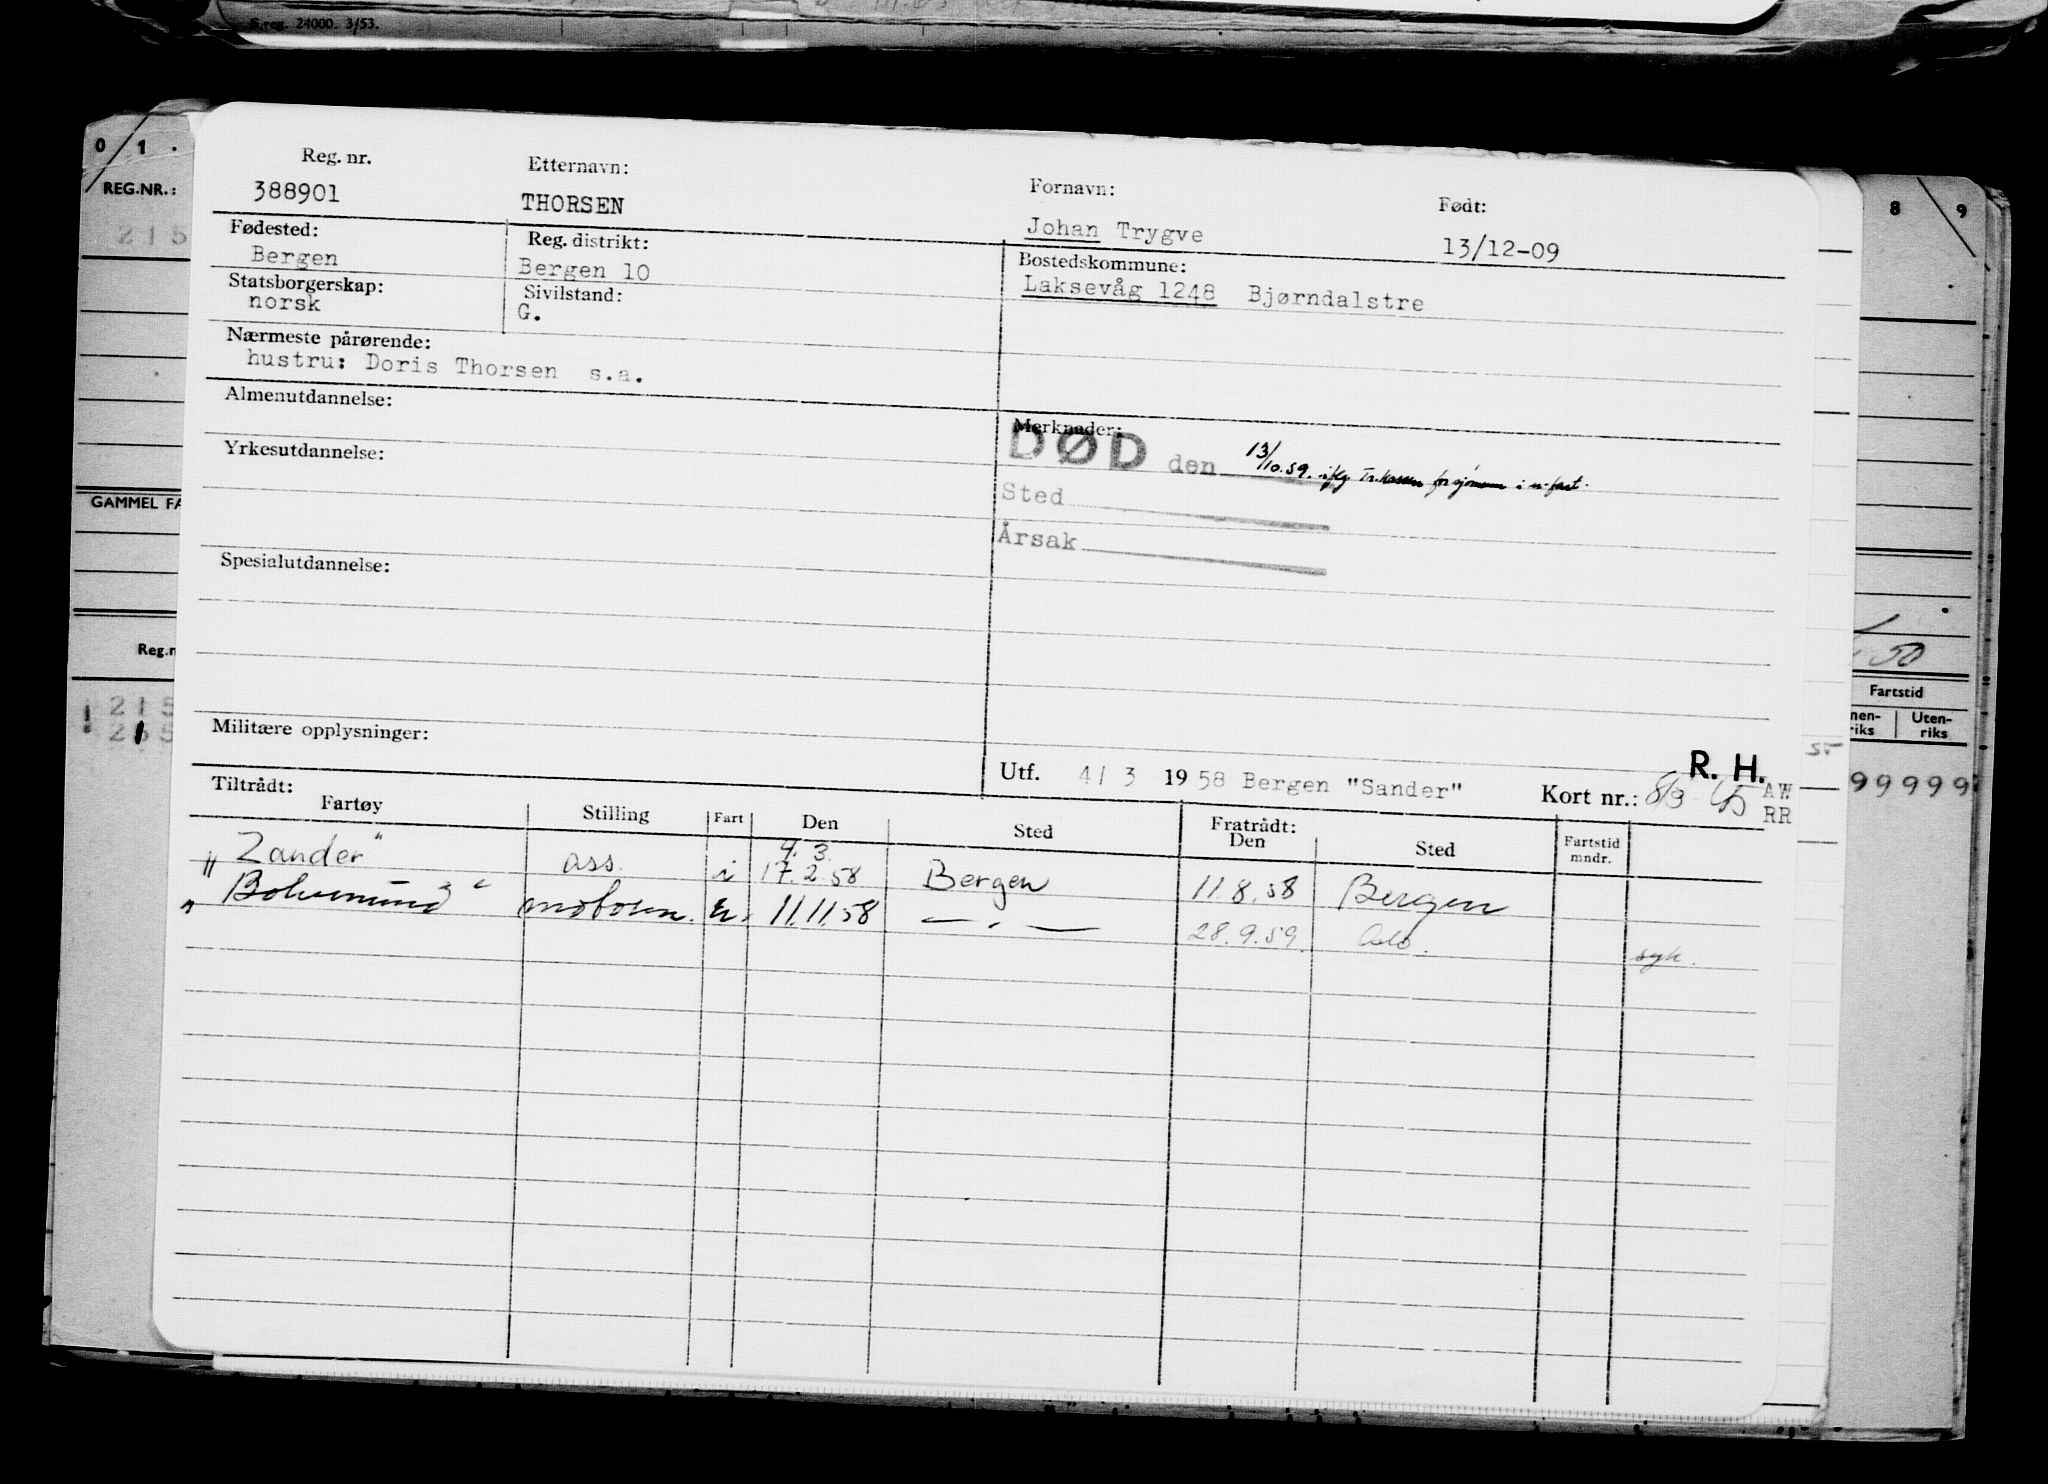 S.reg. 24000. 3/53.
0 1
REG.NR.:
215
GAMMEL FA
Reg.n
215
8 9
50
Fartstid
Uten-
riks
99999
Reg. nr. Etternavn: Fornavn: Født:
388901 THORSEN Johan Trygve 13/12-09
Fødested: Reg. distrikt: Bostedskommune:
Bergen Bergen 10 Laksevåg 1248 Bjørndalstre
Statsborgerskap: Sivilstand:
norsk G.
Nærmeste pårørende:
hustru: Doris Thorsen s.a.
Almenutdannelse: Merknader:
DØD den 13/10.59. iflg. Tr.kassen for sjømenn i u-fart.
Yrkesutdannelse:
Sted
Årsak
Spesialutdannelse:
Militære opplysninger:
R. H.
Utf. 4/3 1958 Bergen "Sander" Kort nr.: 8/3 AW
RR
Tiltrådt: Fratrådt:
Fartøy Stilling Fart Den Sted Den Sted Fartstid mndr.
4. 3.
"Zander" ass. i 17.2.58 Bergen 11.8.58 Bergen
motosm. u. 11.11.58 — " — 28.9.59. Oslo. syk.